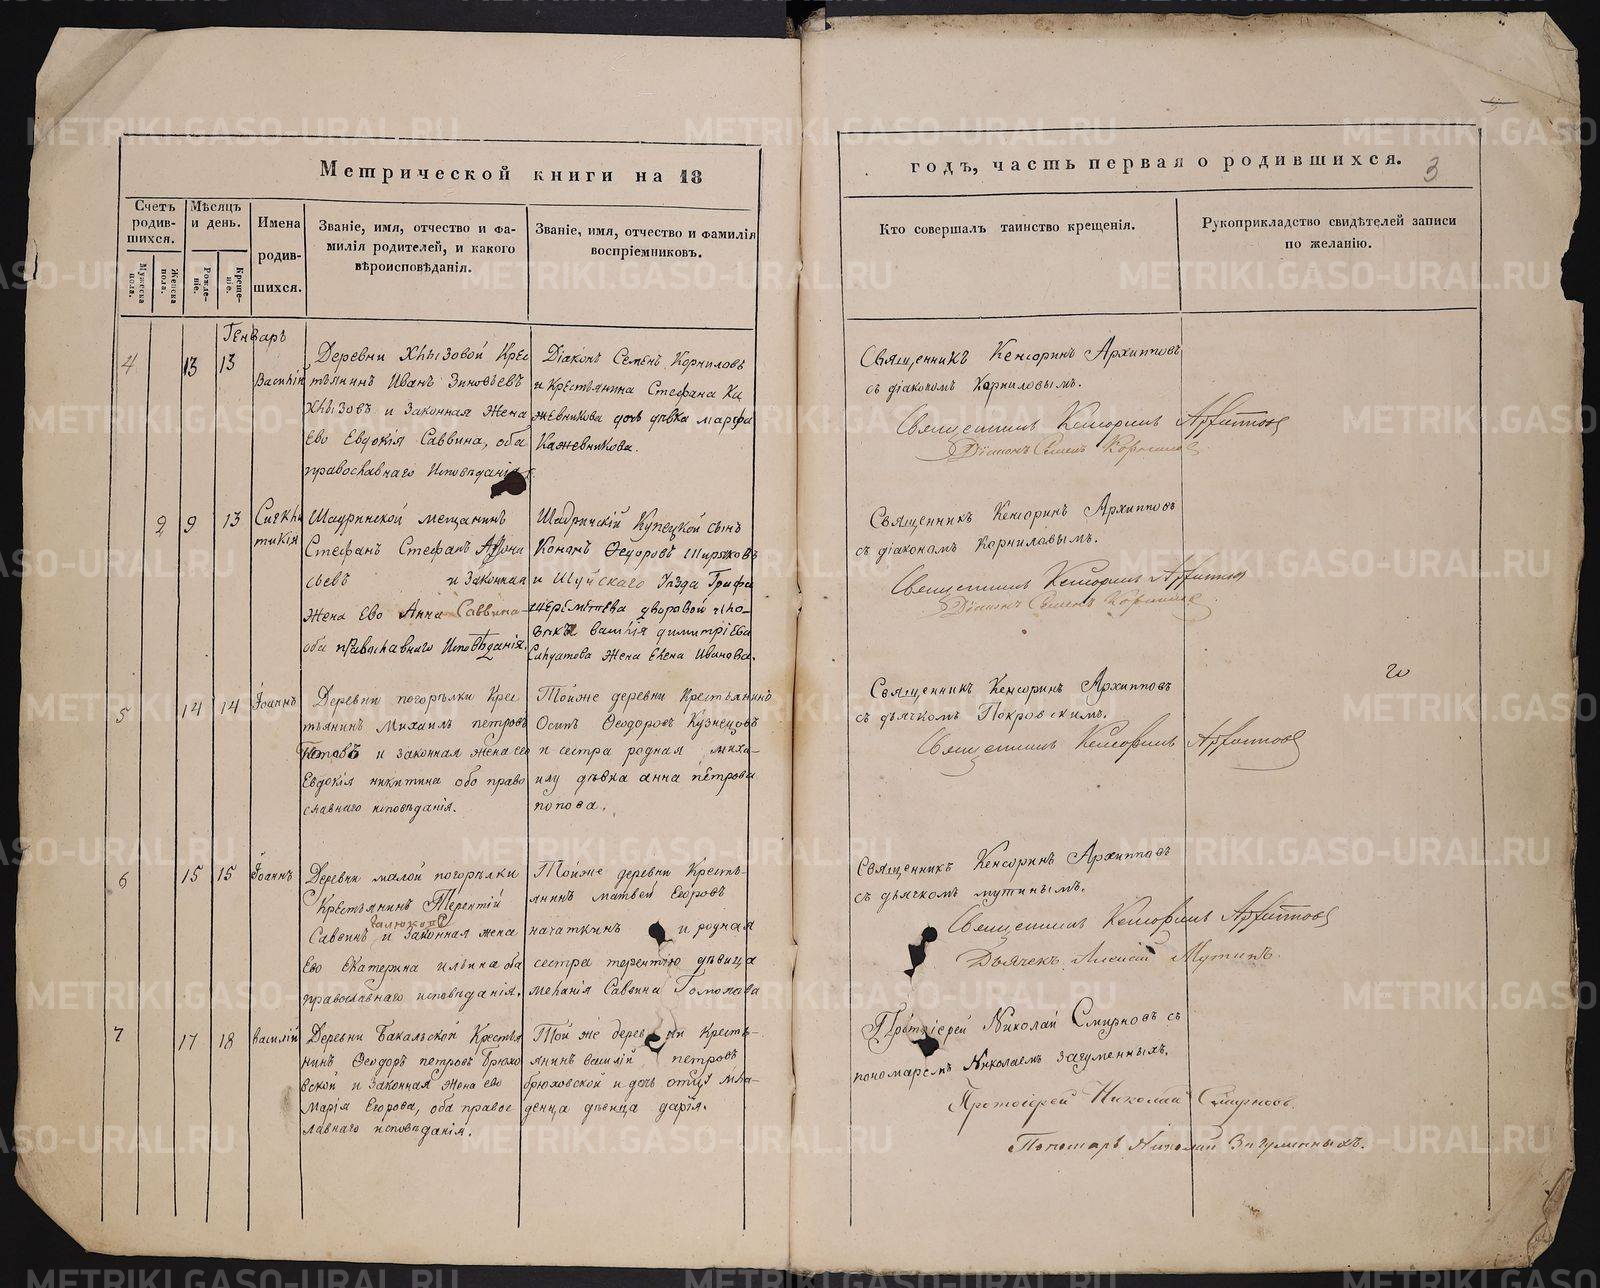 Метрической книги на 18
годъ, часть первая о родившихся.
3
Счетъ родив-
шихся.
Мѣсяцъ
и день.
Имена
родив-
шихся.
Званіе, имя, отчество и фа-
милія родителей, и какого
вѣроисповѣданія.
Званіе, имя, отчество и фамилія
воспріемниковъ.
Кто совершалъ таинство крещенія.
Рукоприкладство свидѣтелей записи
по желанію.
Мужеска
пола.
Женска
пола.
Рожде-
ніе.
Креще-
ніе.
Генварь
4 13 13 Василій
Деревни Хлызовой Крес
тьянинъ Иванъ Зиновьевъ
Хлызовъ и Законная Жена
Ево Евдокія Саввина, оба
православнаго Исповѣданія.
Діаконъ Семенъ Корниловъ
и Крестьянина Стефана Ка
жевникова дочь дѣвка марфа
Кажевникова.
Священникъ Кенсоринъ Архиповъ
съ діакономъ Корниловымъ.
Священникъ Кенсоринъ Архиповъ
Діаконъ Семенъ Корниловъ
2 9 13 Синкли
тикія
Шадринской мещанинъ
Стефанъ Стефанъ
сьевъ и Законная
Жена Ево Анна Саввина
оба православнаго Исповѣданія.
Шадринскій Купецкой сынъ
Ѳедоровъ
и Шуйскаго Уѣзда Графа
Шереметева дворовой чело-
векъ василія димитріева
Салдатова Жена Елена Иванова.
Священникъ Кенсоринъ Архиповъ
съ діакономъ Корниловымъ.
Священникъ Кенсоринъ Архиповъ
Діаконъ Семенъ Корниловъ
5 14 14 Іоаннъ
Деревни погорѣлки Крес
тьянинъ Михаилъ петровъ
Поповъ и законная жена ево
Евдокія никитина обо право
славнаго исповѣданія.
Тойже деревни Крестьянинъ
Осипъ Ѳеодоровъ Кузнецовъ
и сестра родная миха-
илу дѣвка анна петрова
попова.
Священникъ Кенсоринъ Архиповъ
съ дьячкомъ Покровскимъ.
Священникъ Кенсоринъ Архиповъ
6 15 15 Іоаннъ
Деревни малой погорѣлки
Крестьянинъ Терентій
Саввинъ и законная жена
Ево Екатерина ильина оба
православнаго исповѣданія.
Тойже деревни Кресть-
янинъ матвей Егоровъ
началкинъ и родная
сестра терентію дѣвица
меланія Саввина
Священникъ Кенсоринъ Архиповъ
съ дьячкомъ мутинымъ.
Священникъ Кенсоринъ Архиповъ
Дьячекъ Алексій Мутинъ.
7 17 18 василій
Деревни Бакальской Крестья
нинъ Ѳеодоръ петровъ Брюхо
вской и Законная Жена ево
Марія Егорова, оба правос
лавнаго исповѣданія.
Той же деревни Кресть-
янинъ василій петровъ
брюховской и дочь отца мла-
денца дѣвица дарія.
Протоіерей Николай Смирновъ съ
пономаремъ Николаемъ Загуменныхъ.
Протоіерей Николай Смирновъ.
Пономарь Николай Загуменныхъ.
METRIKI.GASO-URAL.RU